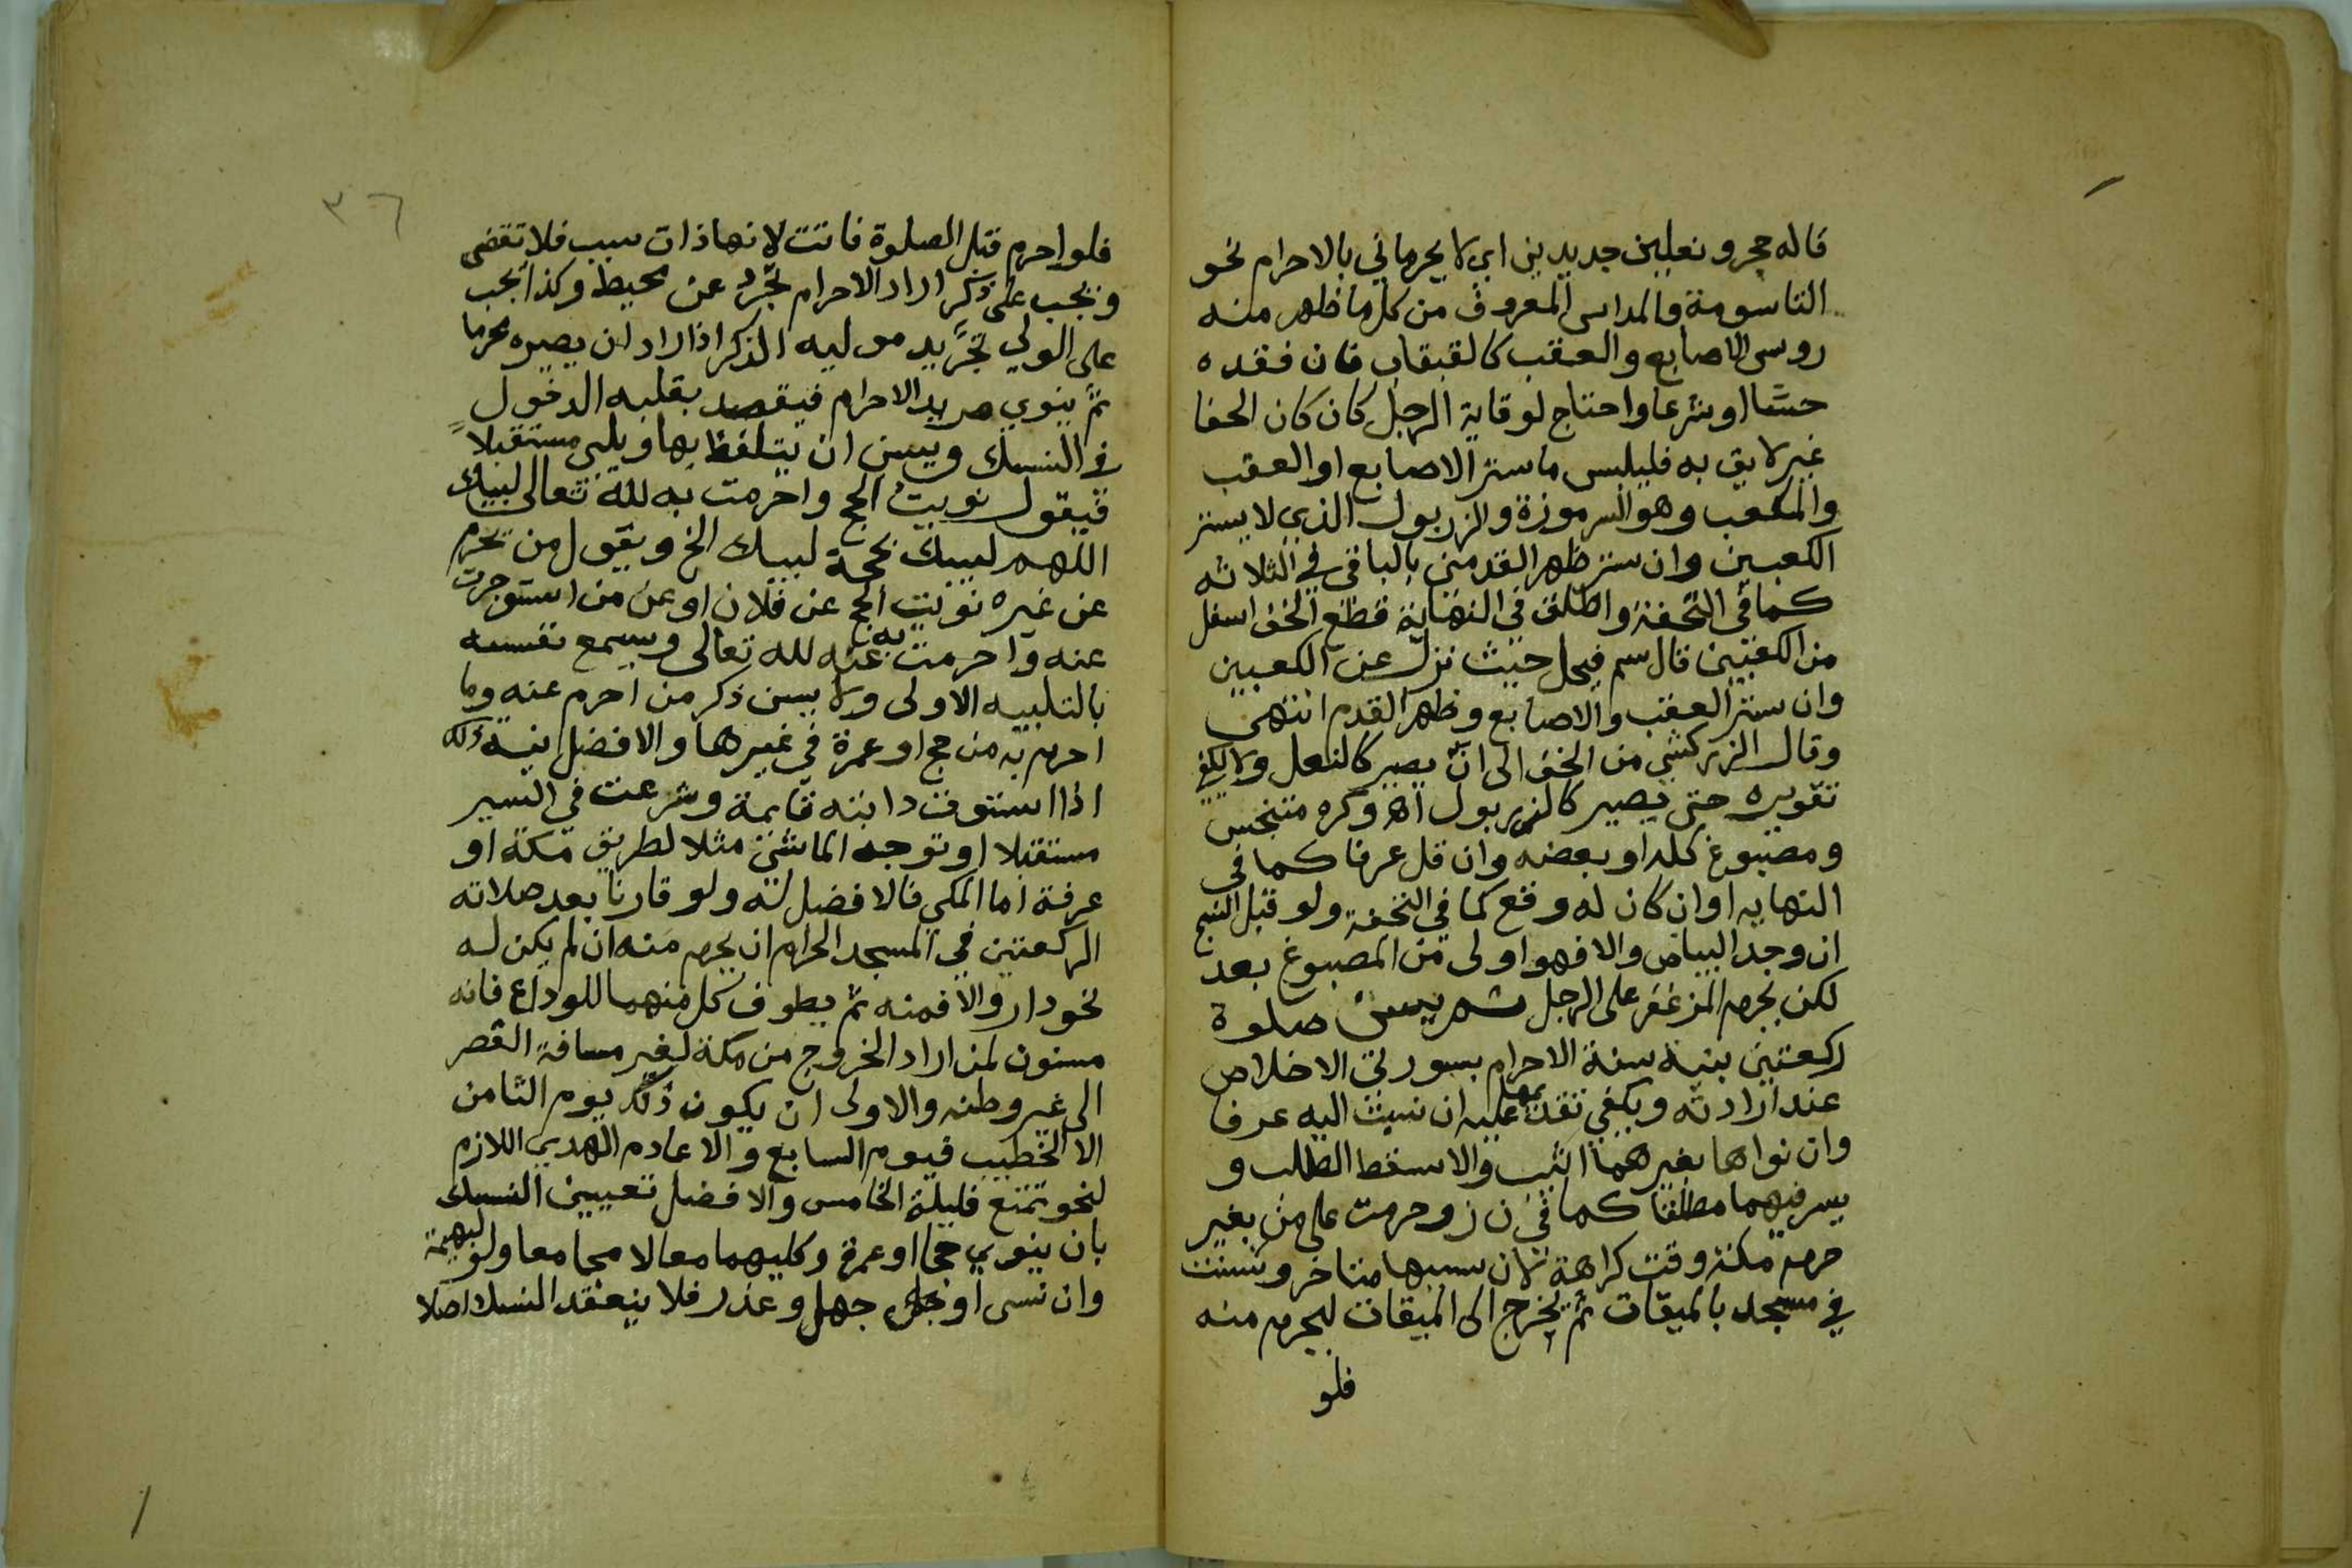 قاله حجر ونعلين جديدين اي لا يحرماني بالاحرام نحو
التاسومة والمداس المعروف من كل ما ظهر منه
روس الاصابع والعقب كالقبقاب فان فقده
حسًا او شرعا واحتاج لوقاية الرجل كان كان الحفا
غير لايق به فليلبس ما ستر الاصابع او العقب
والمكعب وهو السرموزة والزربول الذي لا يستر
الكعبين وان ستر ظهر القدمين بالباقي في الثلاثه
كما في التحفة واطلق في النهاية قطع الخف اسفل
من الكعبين قال سم فيحل حيث نزل عن الكعبين
وان ستر العقب والاصابع وظهر القدم انتهى
وقال الزركشي من الخف الى ان يصير كالنعل ولا يكفي
تقويره حتى يصير كالزربول اه وكره متنجس
ومصبوغ كله او بعضه وان قل عرفا كما في
النهايه او ان كان له وقع كما في التحفة ولو قبل النسج
ان وجد البياض والا فهو اولى من المصبوغ بعد
لكن يحرم المزعفر على الرجل ثم يسن صلوة
ركعتين بنية سنة الاحرام بسورتي الاخلاص
عند ارادته ويكفي تقدمهما عليه ان نسبت اليه عرفا
وان نواها بغيرهما اثيب والا سقط الطلب و
يسر فيهما مطلقا كما في ن ز وحرمت على من بغير
حرم مكة وقت كراهة لان سببها متاخر وتسن
في مسجد بالميقات ثم يخرج الى الميقات ليحرم منه
فلو
٣٦
فلو احرم قبل الصلوة فاتت لانها ذات سبب فلا تقضى
ويجب على ذكر اراد الاحرام تجرد عن محيط وكذا يجب
على الولي تجريد موليه الذكر اذا اراد ان يصيره محرما
ثم ينوي مريد الاحرام فيقصد بقلبه الدخول
في النسك ويسن ان يتلفظ بها ويلبي مستقبلا
فيقول نويت الحج واحرمت به لله تعالى لبيك
اللهم لبيك بحجة لبيك الخ ويقول من يحرم
عن غيره نويت الحج عن فلان او عن من استوجرت
عنه واحرمت به عنه لله تعالى ويسمع نفسه
بالتلبيه الاولى ولا يسن ذكر من احرم عنه وما
احرم به من حج او عمرة في غيرها والافضل نية ذلك
اذا استوفت دابته قايمة وشرعت في السير
مستقبلا او توجه الماشي مثلا لطريق مكة او
عرفة اما المكي فالافضل له ولو قارنا بعد صلاته
الركعتين في المسجد الحرام ان يحرم منه ان لم يكن له
نحو دار والا فمنه ثم يطوف كل منهما للوداع فانه
مسنون لمن اراد الخروج من مكة لغير مسافة القصر
الى غير وطنه والاولى ان يكون ذلك يوم الثامن
الا الخطيب فيوم السابع والا عادم الهدي اللازم
لنحو تمتع فليلة الخامس والافضل تعيين النسك
بان ينوي حجا او عمرة وكليهما معا لا مجامعا ولو لبهيمة
وان نسى او جهل وعذر فلا ينعقد النسك اصلا